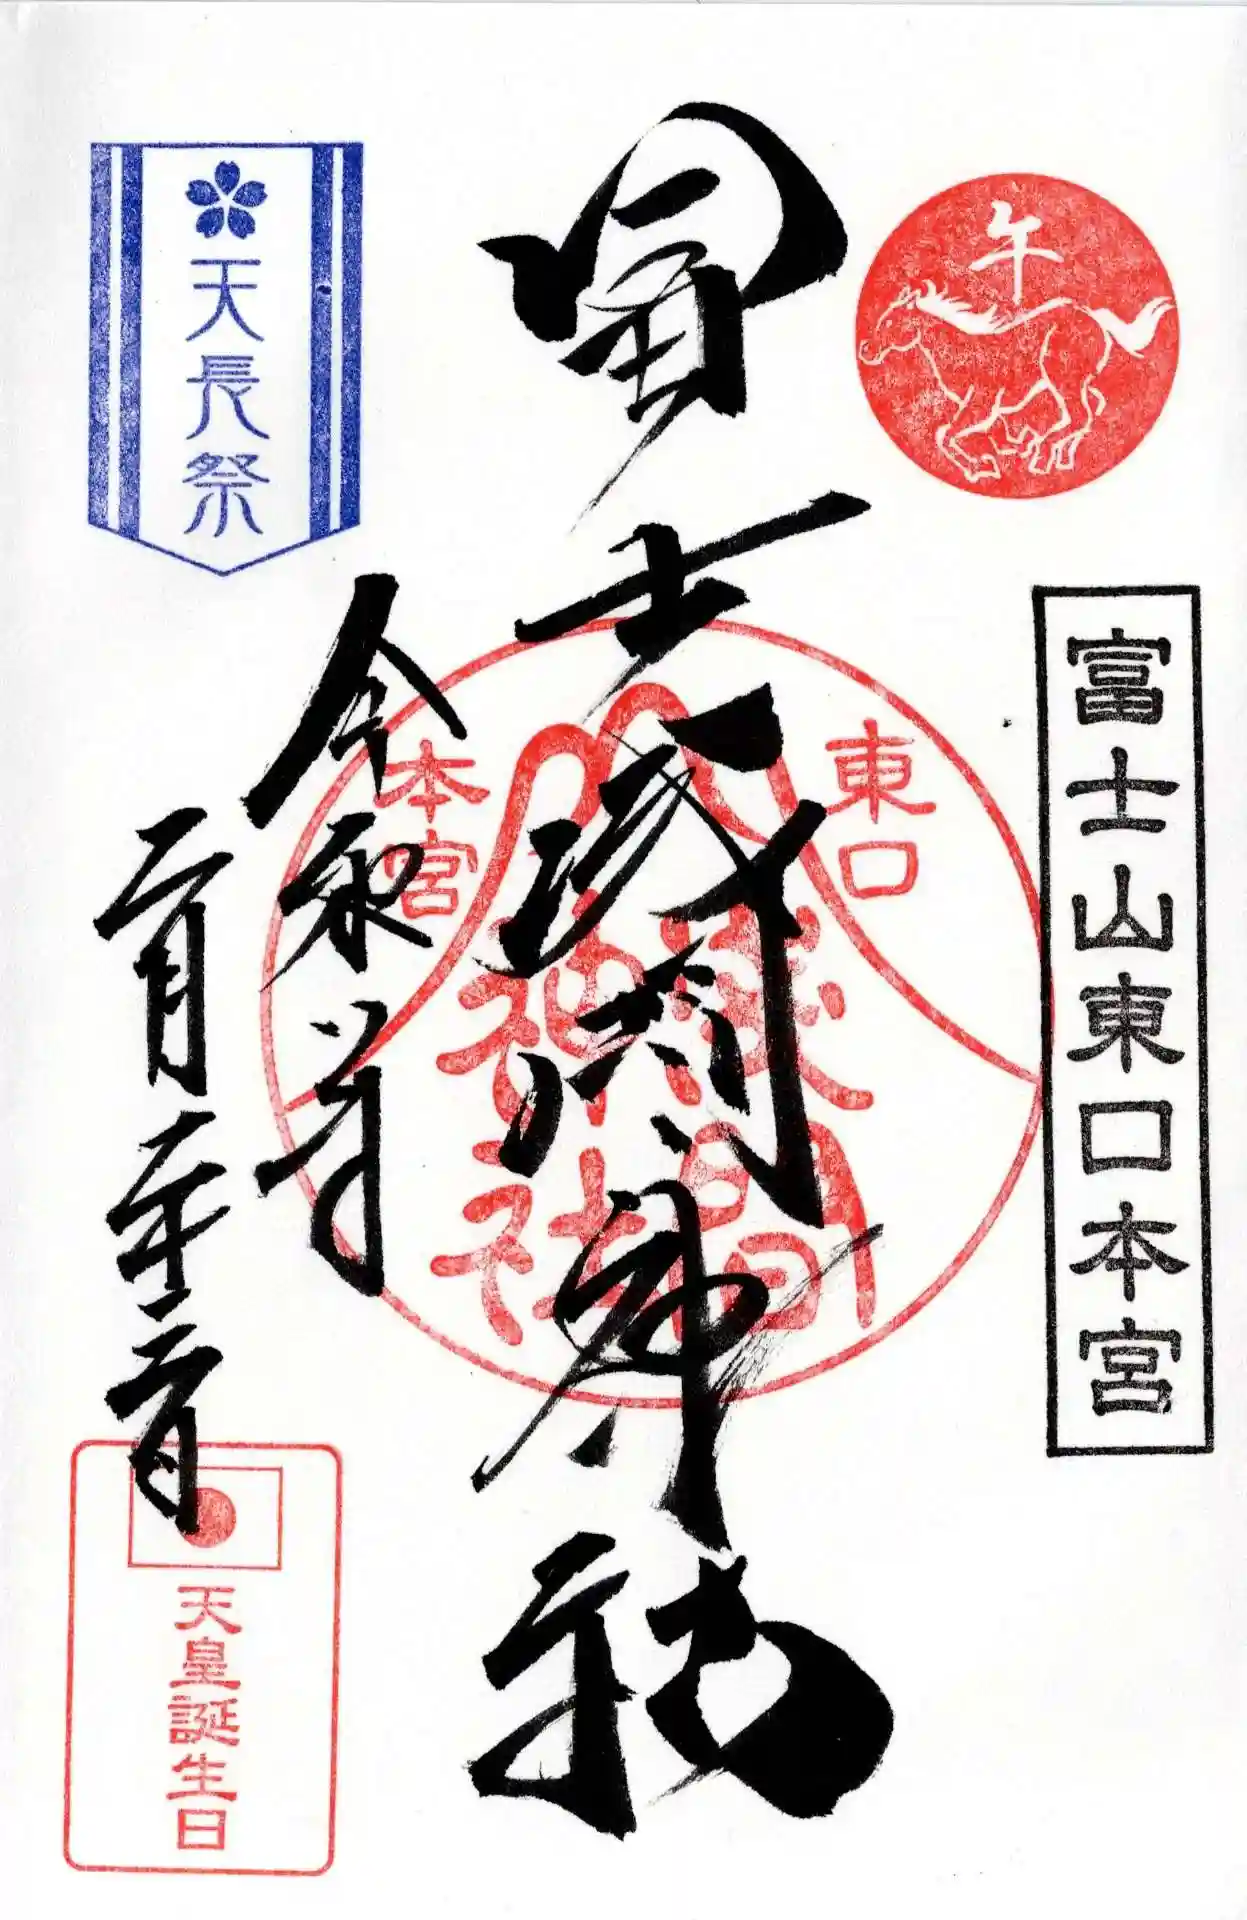 午
富士山東口本宮
冨士浅間神社
東口
本宮
淺間
神社
令和八年
二月二十三日
天長祭
天皇誕生日